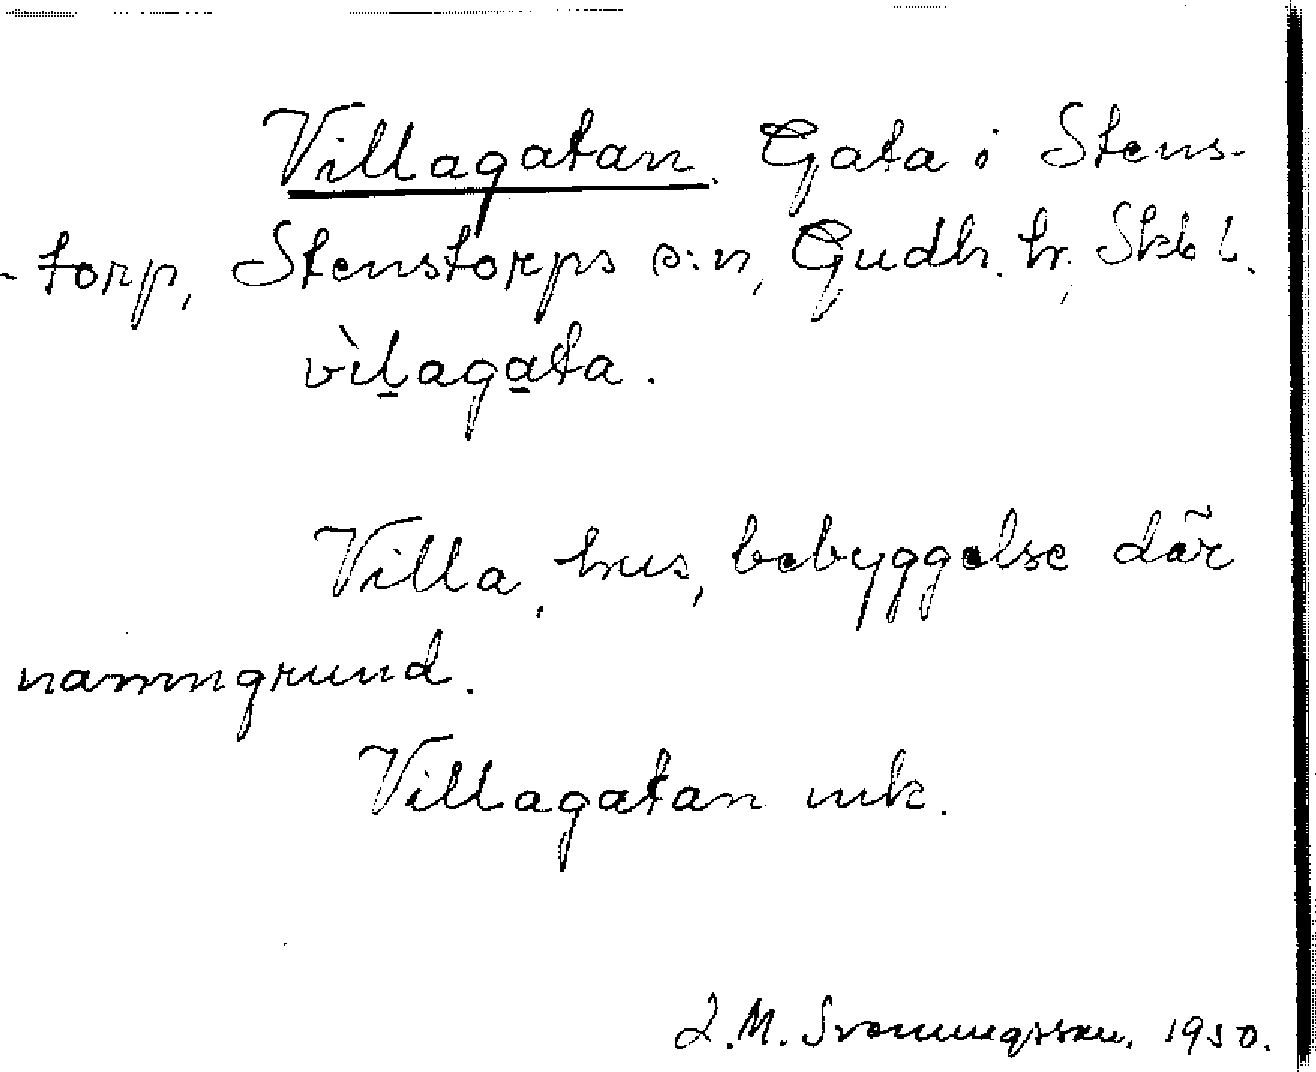 Villagatan. Gata i Stens-
-torp, Stenstorps s:n, Gudh. hr, Skb l.
vìlagata.
Villa, hus, bebyggelse där
namngrund.
Villagatan unk.
1950.